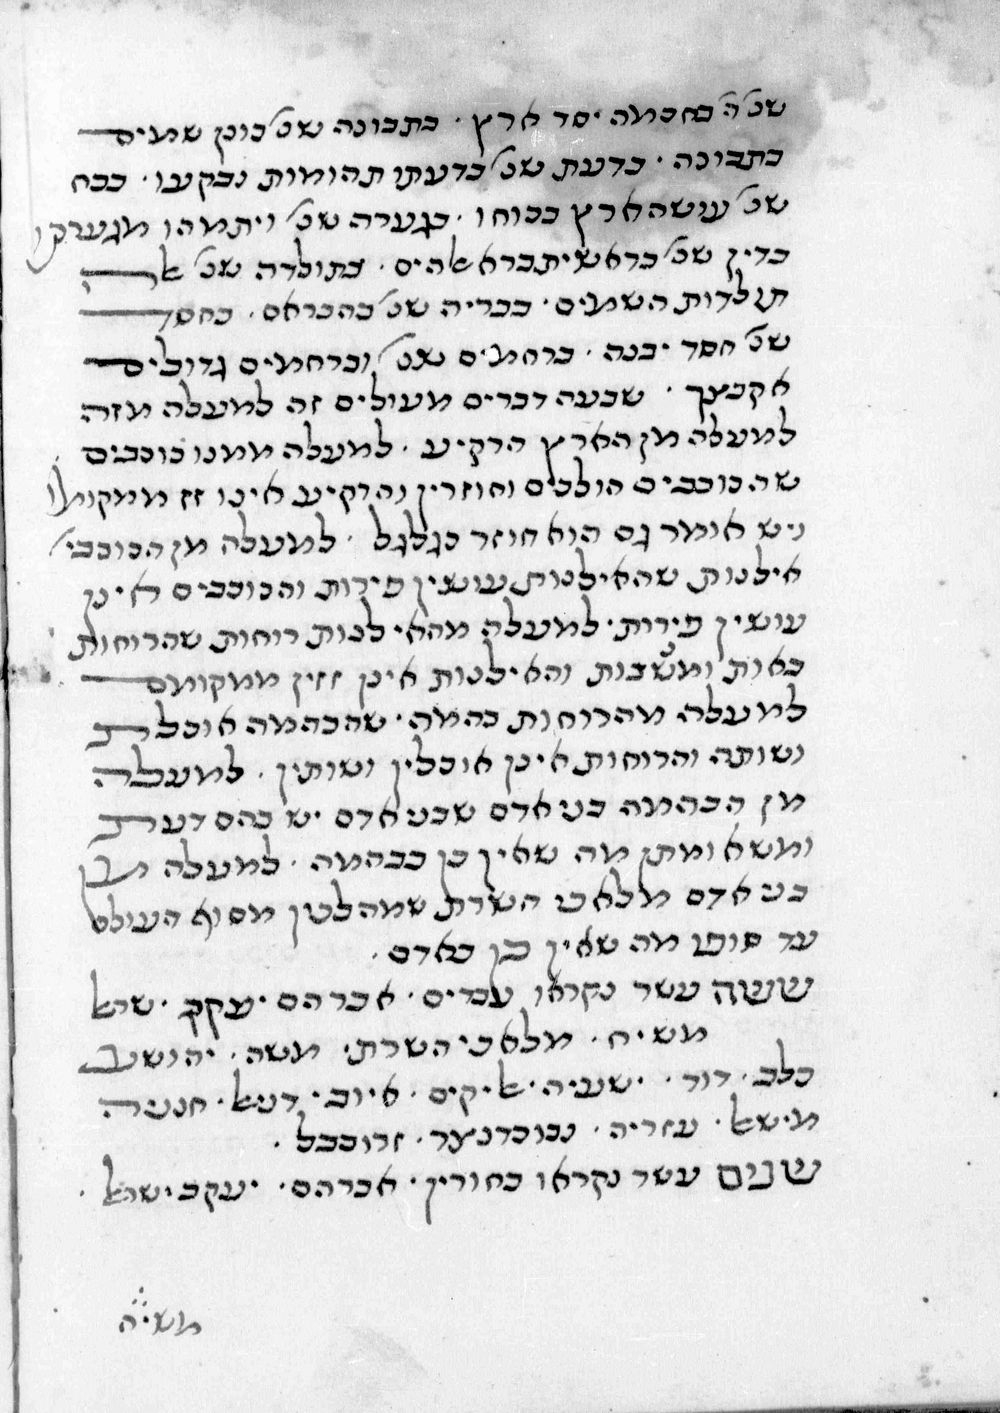 שנ' ה' בחכמה יסד ארץ · בתבונה שנ' כונן שמים
בתבונה · בדעת שנ' בדעתו תהומות נבקעו · בכח
שנ' עושה ארץ בכוחו · בגערה שנ' ויתמהו מגערתו
בדין שנ' בראשית ברא אלהים · בתולדה שנ' אלה
תולדות השמים · בבריה שנ' בהבראם · בחסד
שנ' חסד יבנה · ברחמים שנ' וברחמים גדולים
אקבצך · שבעה דברים מעולים זה למעלה מזה
למעלה מן הארץ הרקיע · למעלה ממנו כוכבים
שהכוכבים הולכים וחוזרין והרקיע אינו זז ממקומו
ויש אומר גם הוא חוזר כגלגל · למעלה מן הכוכבי'
אילנות שהאילנות עושין פירות והכוכבים אינן
עושין פירות · למעלה מהאילנות רוחות שהרוחות
באות ומשבות והאילנות אינן זזין ממקומם
למעלה מהרוחות בהמה · שהבהמה אוכלת
ושותה והרוחות אינן אוכלין ושותין · למעלה
מן הבהמה בני אדם שבני אדם יש בהם דעת
ומשא ומתן מה שאין כן בבהמה · למעלה מן
בני אדם מלאכי השרת שמהלכין מסוף העולם
עד סופו מה שאין כן באדם ·
ששה עשר נקראו עבדים · אברהם יעקב · ישראל
משיח · מלאכי השרת · משה · יהושע
כלב · דוד · ישעיה · אליקים · איוב · דניאל · חנניה
מישאל · עזריה · נבוכדנצר · זרובבל ·
שנים עשר נקראו בחורין · אברהם · יעקב · ישראל ·
משיח